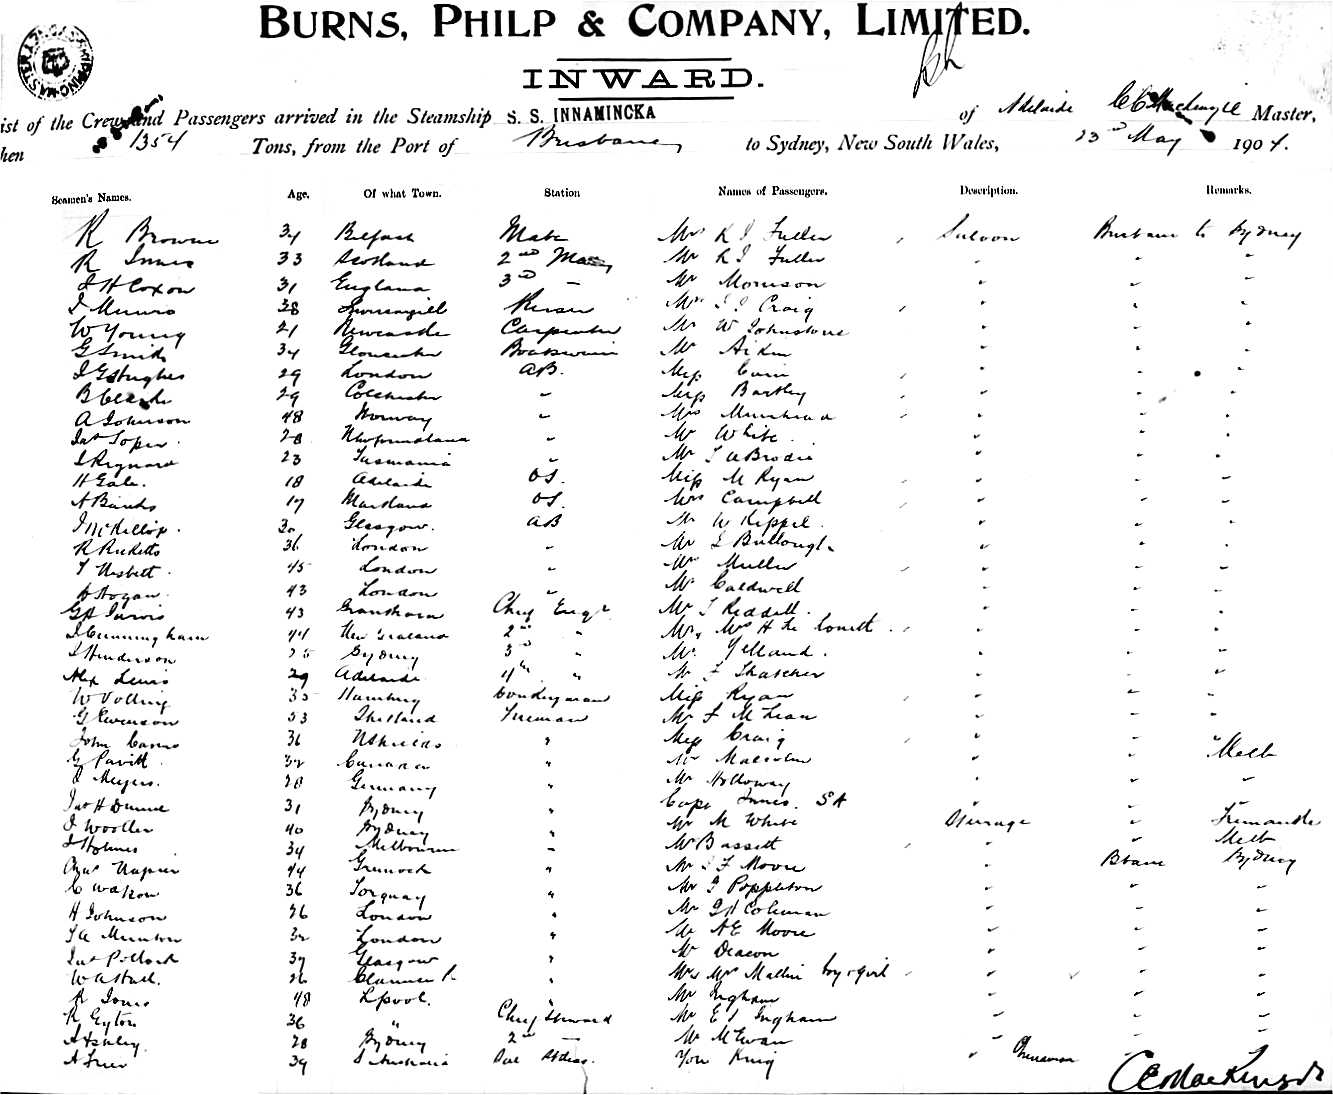 BURNS, PHILP & COMPANY, LIMITED.
INWARD.
ist of the Crew and Passengers arrived in the Steamship S. S. INNAMINCKA of Adelaide Master,
hen 1354 Tons, from the Port of Brisbane to Sydney, New South Wales, 23rd May 1904.
Seamen's Names. Age. Of what Town. Station Names of Passengers. Description. Remarks.
R Browne 34 Belfast Mate Mrs R J Fuller Saloon Brisbane to Sydney
R Innes 33 Scotland 2nd Mate Mr R J Fuller " " "
J H Coxon 31 England 3rd - Mr Morrison " " "
J Munro 38 Purser Mrs J J Craig " " "
W Young 21 Newcastle Carpenter Mr W Johnstone " " "
G Smith 34 Gloucester Boatswain Mr " " "
J G Hughes 29 London AB. Miss " " "
B 29 Colchester " Miss Bartley " " "
A Johnson 48 Norway " Mrs Muirhead " " "
Jas Soper 28 Newfoundland " Mr White " " "
J Reynard 23 Tasmania " Mr J A Brodie " " "
H Gale. 18 Adelaide OS. Miss M Ryan " " "
A Banks 17 Maitland OS. Mrs Campbell " " "
J McKillop 30 Glasgow. AB Mr W Keppel " " "
R Ricketts 36 London " Mr " " "
T Nesbett 45 London " Mr Muller " " "
Hogan 43 London " Mr Caldwell " " "
G Jarvis 43 Chief Engr Mr J Riddell. " " "
J Cunningham 44 New Zealand 2nd " Mr, Mrs H " " "
J Henderson 25 Sydney 3rd " Mr. Yelland. " " "
Alex Lewis 29 Adelaide 4th " Mr J Thatcher " " "
W Volling 35 Hamburg Donkeyman Miss Ryan " " "
G Evenson 53 Shetland Fireman Mr J McLean " " "
John 36 N Shields " Miss Craig " " "
G Pavitt 32 Canada " Mr Malcolm " " Melb
J Meyers. 28 Germany " Mr Holloway " " "
Jas H Dunne 31 Sydney " Capt Innes. SA " " Fremantle
J Wooller 40 Sydney " Mr M White Steerage " Melb
J Holmes 34 Melbourne " Mr Bassett " Bbane Sydney
Chas Napier 44 Greenock " Mr J F Moore " " "
C Watson 36 Torquay " Mr J Poppleton " " "
H Johnson 26 London " Mr G H Coleman " " "
J A Munton 32 London " Mr A E Moore " " "
Jas Pollock 37 Glasgow " Mr Deacon " " "
W A 26 " Mr, Mrs boy & girl " " "
R Jones 48 Lpool. " Mr Ingham " " "
R Eyton 36 " Chief Steward Mr E J Ingham " " "
A Ashley 28 Sydney 2nd - Mr McEwan " " "
A 39 S Australia Yow King " Chinaman